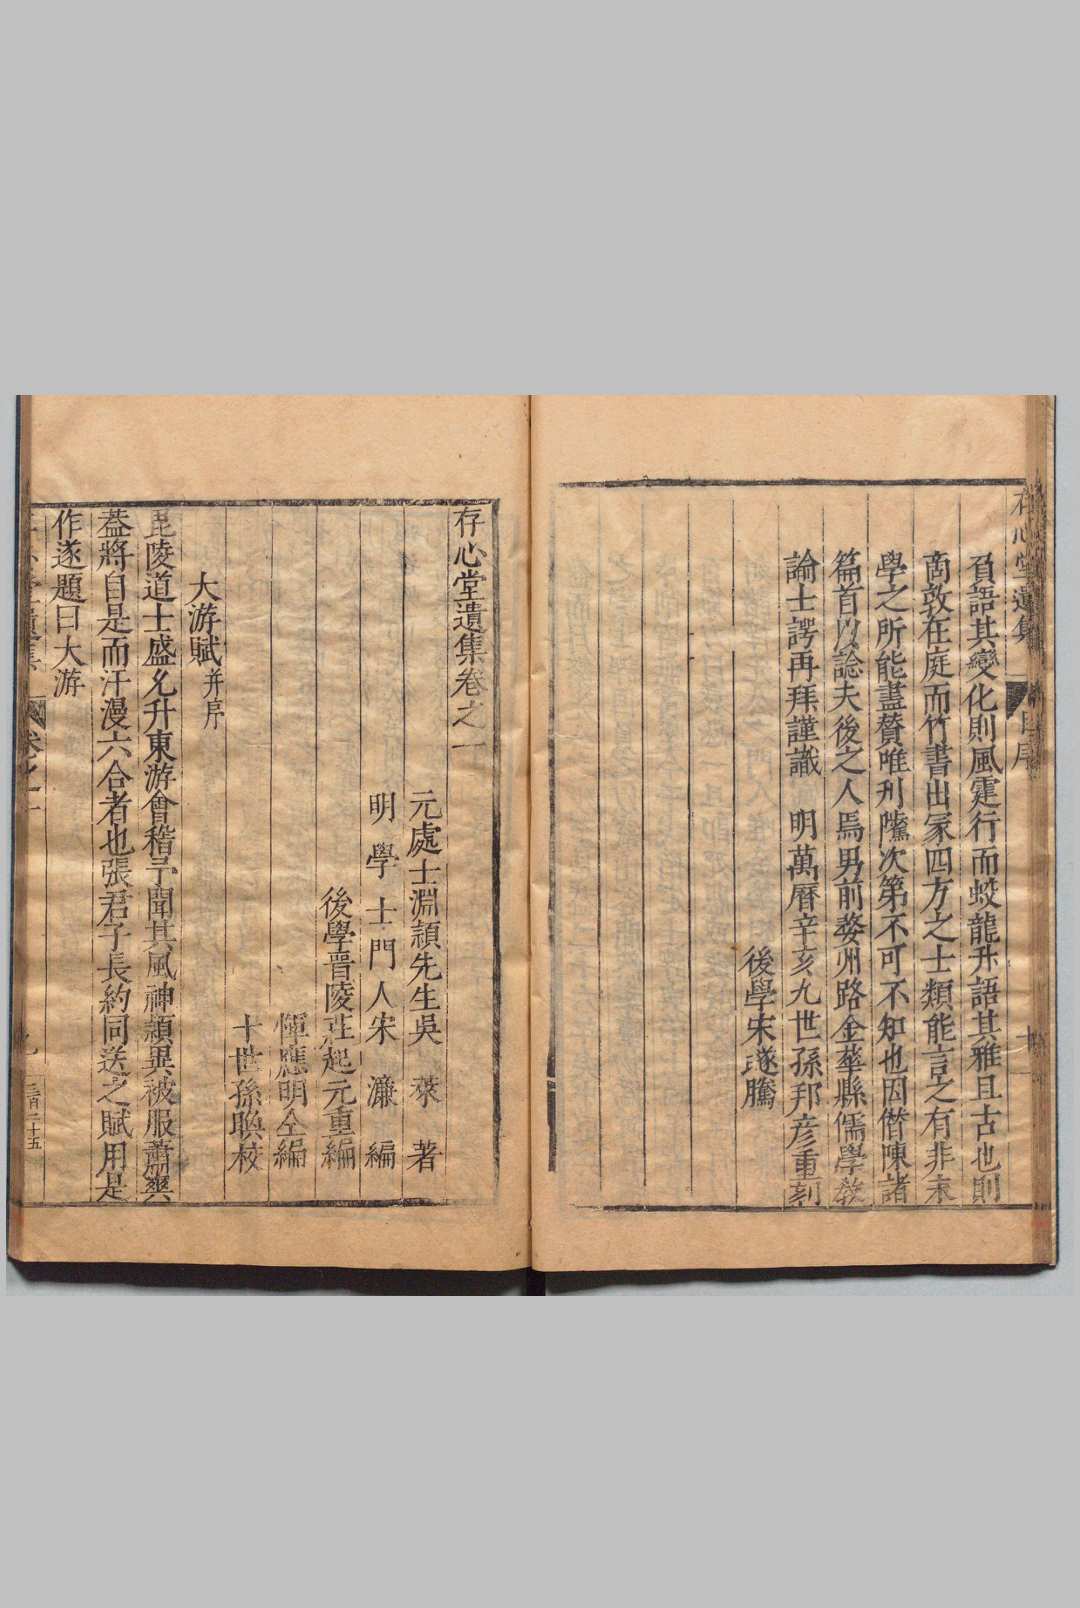 負語其變化則風霆行而蛟龍升語其雅且古也則
商敦在庭而竹書出冢四方之士類能言之有非未
學之所能盡贊唯刋隲次第不可不知也因僣陳諸
篇首以諗夫後之人焉男前婺州路金華縣儒學教
諭士諤再拜謹識 明萬曆辛亥九世孫邦彦重刻
後學宋璲騰
存心堂遺集卷之一
元處士淵頴先生吳 萊 著
明學士門人宋 濂 編
後學晋陵莊起元重編
惲應明仝編
十世孫聫校
大游賦并序
毘陵道士盛允升東游會稽予聞其風神頴異被服蕭爽
葢將自是而汗漫六合者也張君子長約同送之賦用是
作遂題曰大游